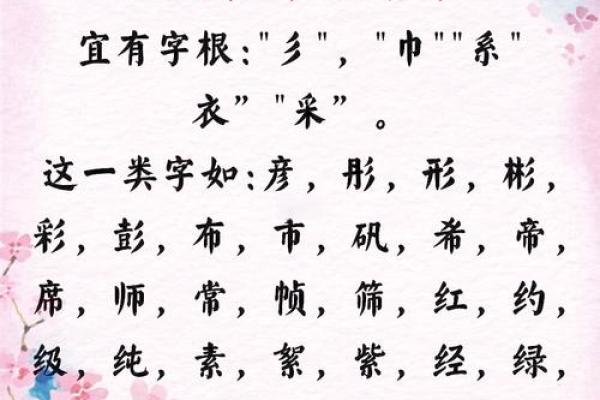 宜有字根:"彡", "巾""系"
衣” "采” 。
这一类字如:彦, 彤, 形, 彬,
彩, 彭, 布, 市, 矾, 希, 帝,
席, 师, 常, 帧, 筛, 红, 约,
级, 纯, 素, 絮, 紫, 经, 绿,